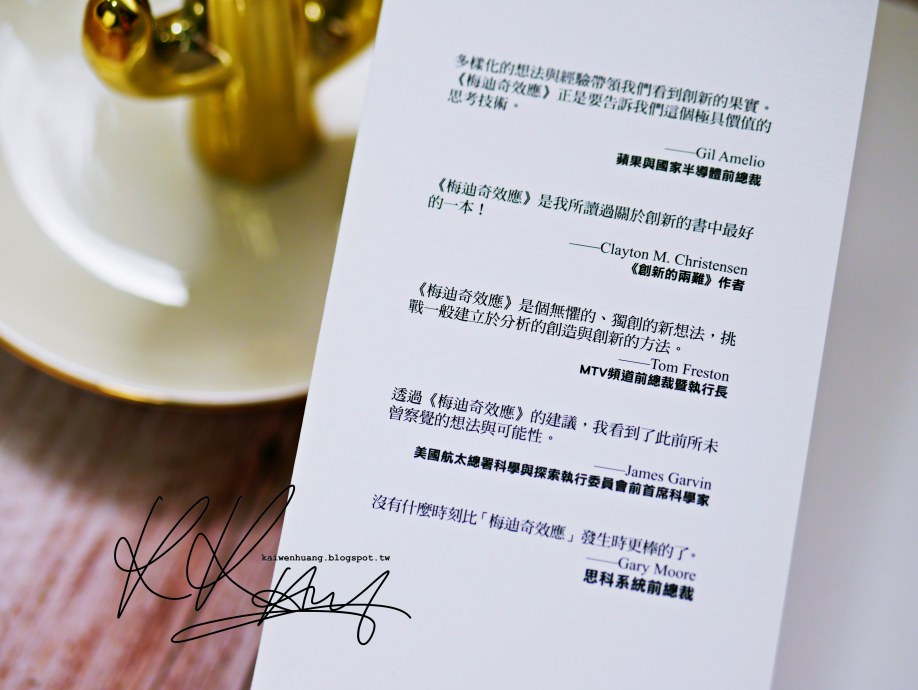 多樣化的想法與經驗帶領我們看到創新的果實。
《梅迪奇效應》正是要告訴我們這個極具價值的
思考技術。
——Gil Amelio
蘋果與國家半導體前總裁
《梅迪奇效應》是我所讀過關於創新的書中最好
的一本！
——Clayton M. Christensen
《創新的兩難》作者
《梅迪奇效應》是個無懼的、獨創的新想法，挑
戰一般建立於分析的創造與創新的方法。
——Tom Freston
MTV頻道前總裁暨執行長
透過《梅迪奇效應》的建議，我看到了此前所未
曾察覺的想法與可能性。
——James Garvin
美國航太總署科學與探索執行委員會前首席科學家
沒有什麼時刻比「梅迪奇效應」發生時更棒的了。
——Gary Moore
思科系統前總裁
kaiwenhuang.blogspot.tw